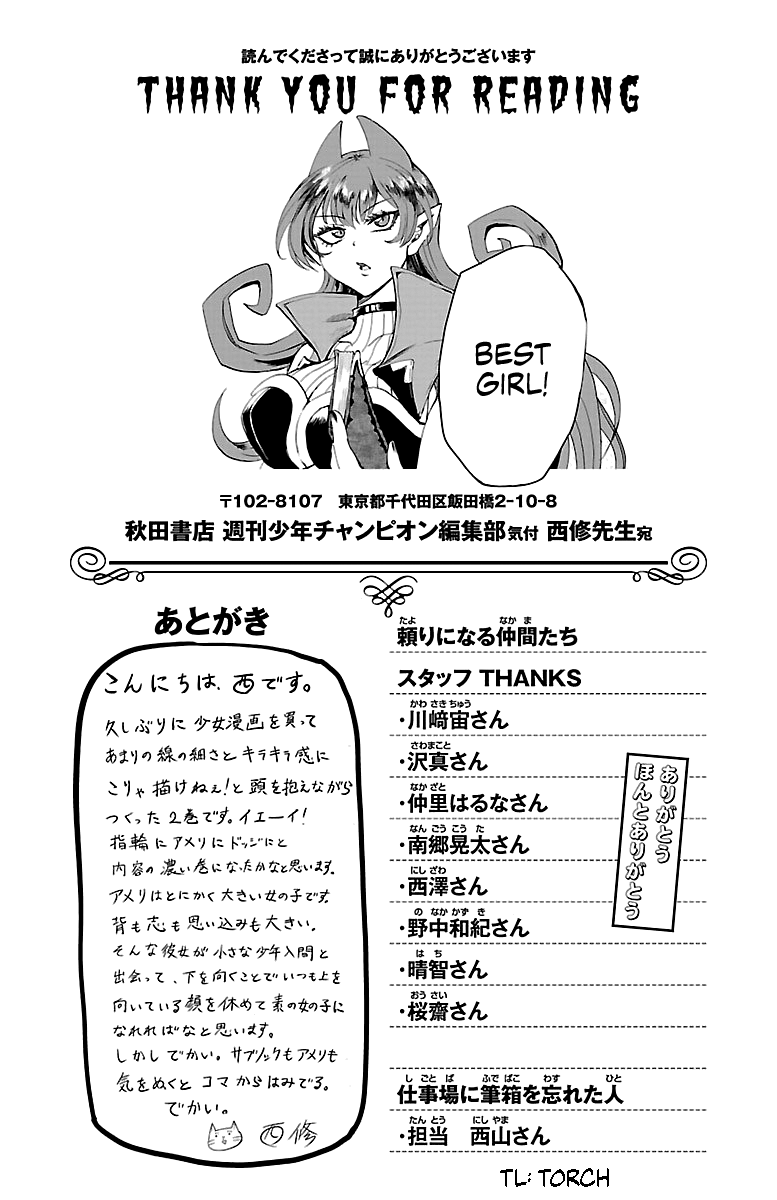 読んでくださって誠にありがとうございます
THANK YOU FOR READING
BEST
GIRL!
〒102-8107 東京都千代田区飯田橋2-10-8
秋田書店 週刊少年チャンピオン編集部気付 西修先生宛
あとがき
こんにちは、西です。
久しぶりに少女漫画を買って
あまりの線の細さとキラキラ感に
こりゃ描けねぇ!と頭を抱えながら
つくった2巻です。イエーイ!
指輪にアメリにドッジにと
内容の濃い巻になったかなと思います。
アメリはとにかく大きい女の子です。
背も志も思い込みも大きい。
そんな彼女が小さな少年入間と
出会って、下を向くことでいつも上を
向いている顔を休めて素の女の子に
なれればなと思います。
しかしでかい。サブノックもアメリも
気をぬくとコマからはみでる。
でかい。
西修
たよ なかま
頼りになる仲間たち
スタッフ THANKS
かわさきちゅう
・川﨑宙さん
さわまこと
・沢真さん
なかざと
・仲里はるなさん
なんごうこうた
・南郷晃太さん
にしざわ
・西澤さん
のなかかずき
・野中和紀さん
はち
・晴智さん
おうさい
・桜齋さん
ありがとう
ほんとありがとう
しごとば ふでばこ わす ひと
仕事場に筆箱を忘れた人
たんとう にしやま
・担当 西山さん
TL: TORCH